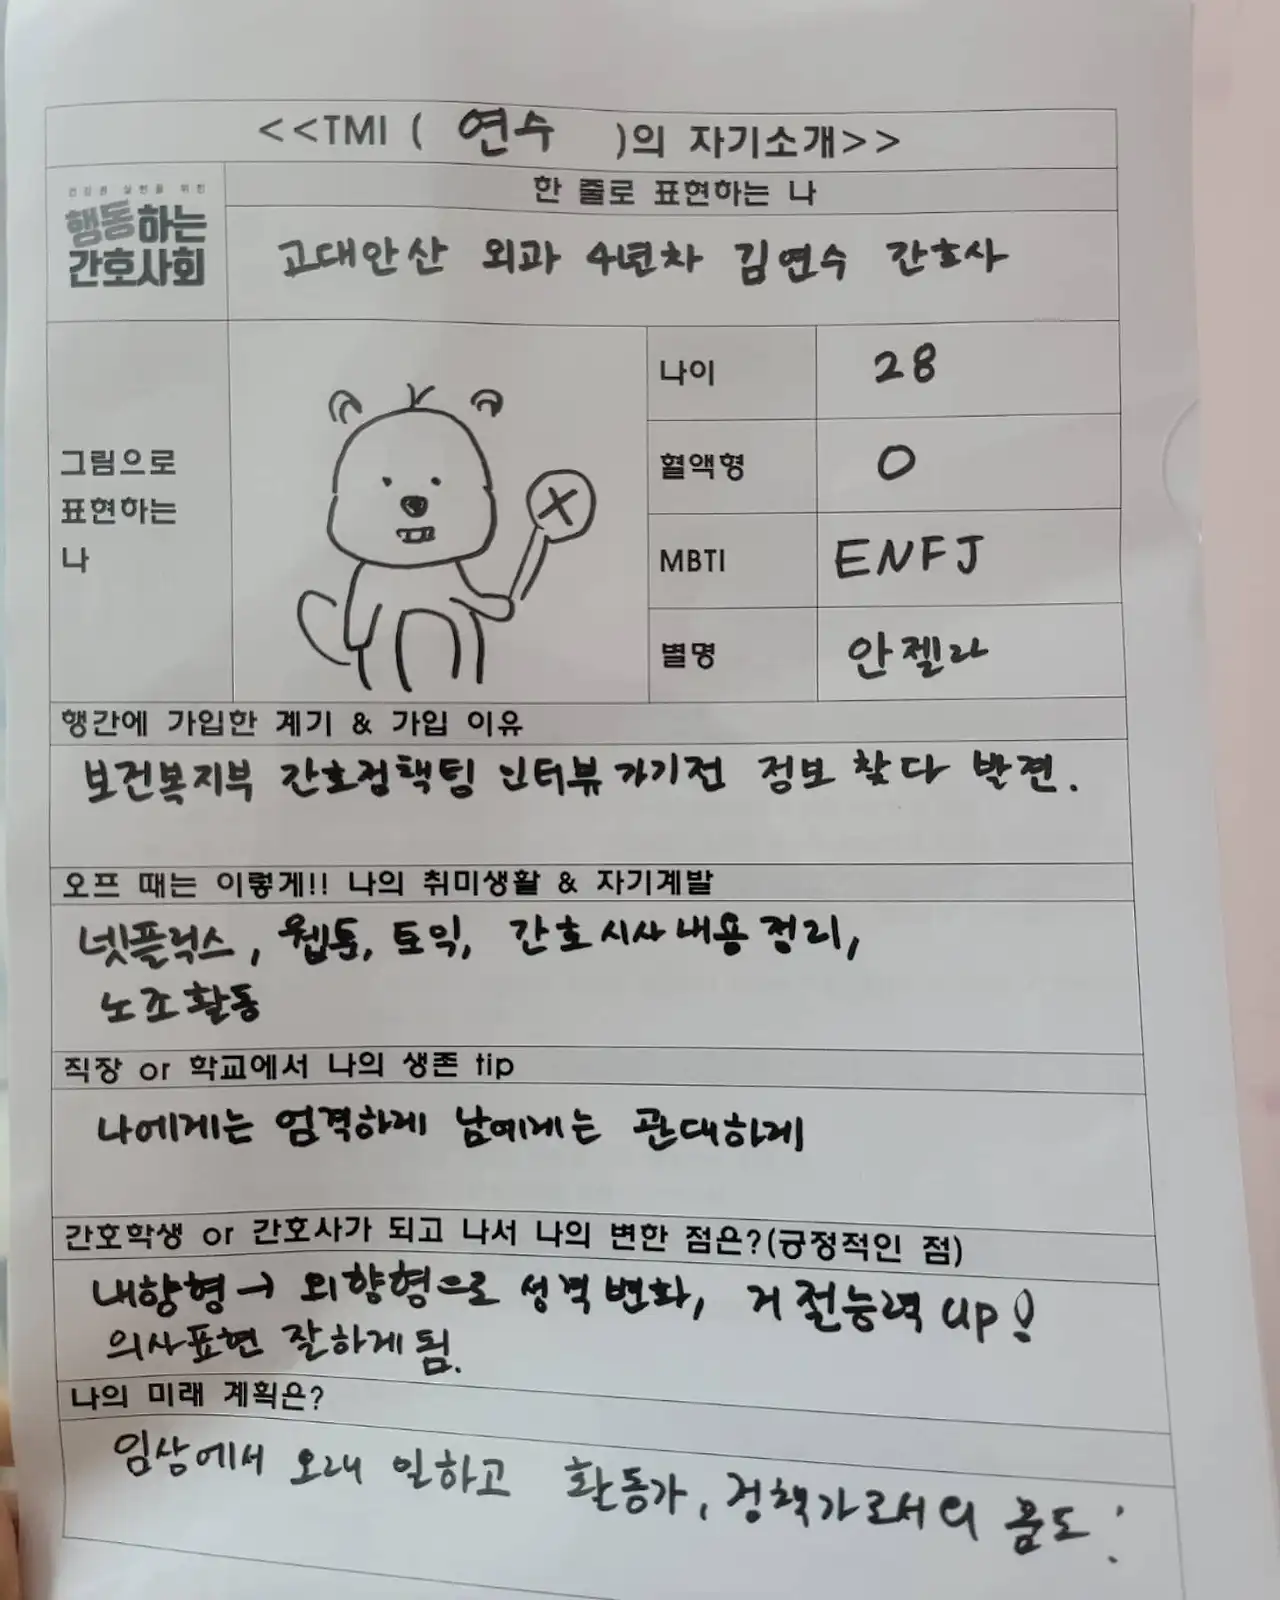 <<TMI ( 연수 )의 자기소개>>
건강권 실현을 위한
행동하는
간호사회
한 줄로 표현하는 나
고대안산 외과 4년차 김연수 간호사
그림으로
표현하는
나
나이 28
혈액형 O
MBTI ENFJ
별명 안젤라
행간에 가입한 계기 & 가입 이유
보건복지부 간호정책팀 인터뷰 가기전 정보 찾다 발견.
오프 때는 이렇게!! 나의 취미생활 & 자기계발
넷플릭스, 웹툰, 토익, 간호시사내용 정리,
노조활동
직장 or 학교에서 나의 생존 tip
나에게는 엄격하게 남에게는 관대하게
간호학생 or 간호사가 되고 나서 나의 변한 점은?(긍정적인 점)
내향형→ 외향형으로 성격변화, 거절능력 up!
의사표현 잘하게됨.
나의 미래 계획은?
임상에서 오래 일하고 활동가, 정책가로서의 꿈도!